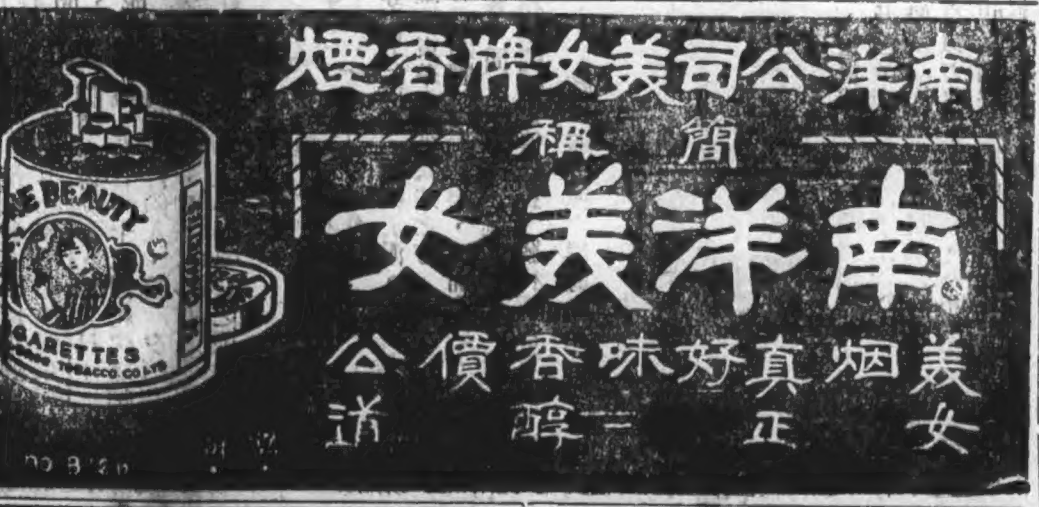 南洋公司美女牌香煙
簡稱
南洋美女
美女烟真正好味香醇價公道
BEAUTY
GARETTES
TOBACCO. CO LTD